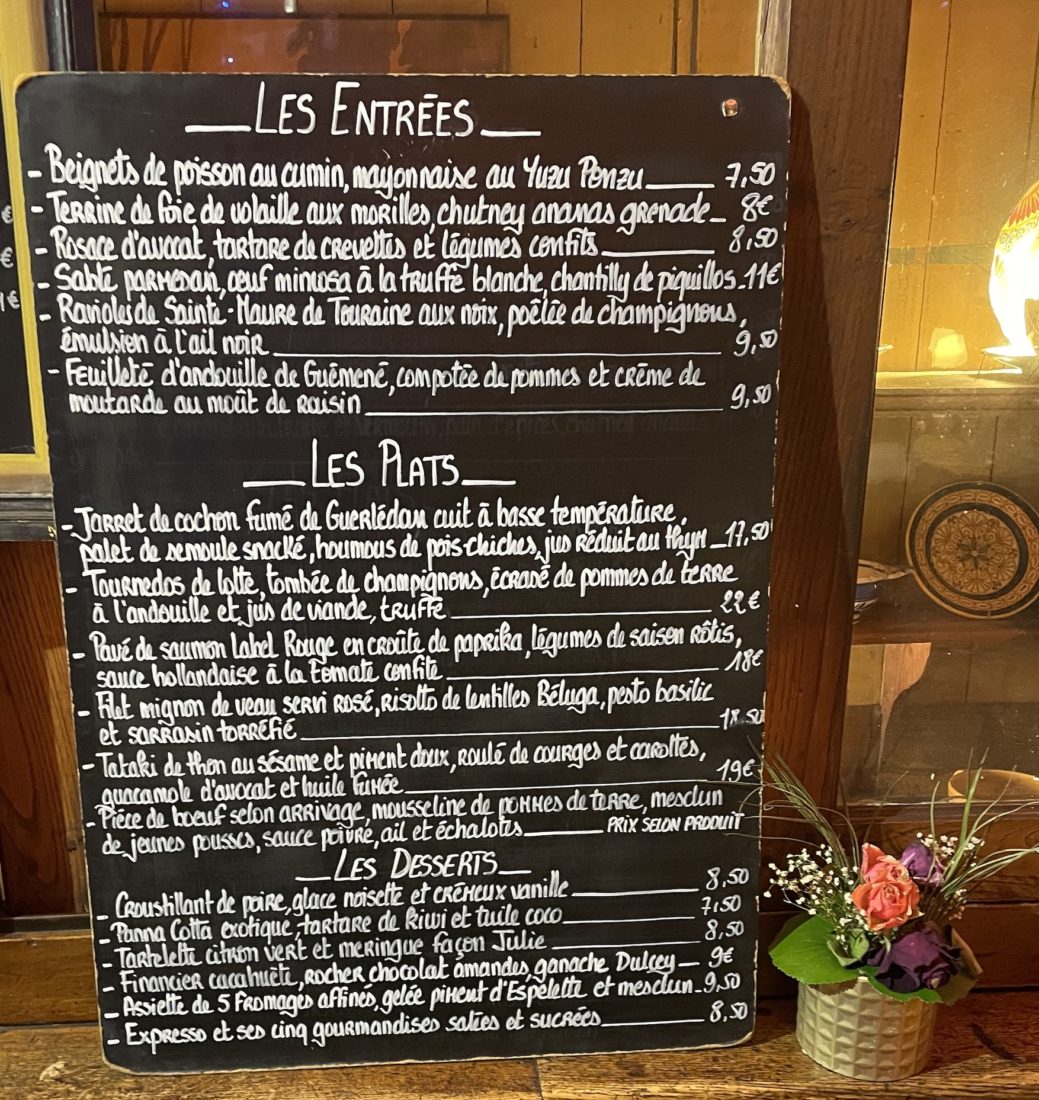 LES ENTRÉES
- Beignets de poisson au cumin, mayonnaise au Yuzu Ponzu 7,50
- Terrine de foie de volaille aux morilles, chutney ananas grenade 8€
- Rosace d'avocat, tartare de crevettes et légumes confits 8,50
- Sablé parmesan, œuf mimosa à la truffe blanche, chantilly de piquillos 11€
- Ravioles de Sainte-Maure de Touraine aux noix, poêlée de champignons,
émulsion à l'ail noir 9,50
- Feuilleté d'andouille de Guémené, compotée de pommes et crème de
moutarde au moût de raisin 9,50
LES PLATS
- Jarret de cochon fumé de Guerlédan cuit à basse température,
palet de semoule snacké, houmous de pois-chiches, jus réduit au thym 17,50
- Tournedos de lotte, tombée de champignons, écrasé de pommes de terre
à l'andouille et jus de viande, truffe 22€
- Pavé de saumon Label Rouge en croûte de paprika, légumes de saison rôtis,
sauce hollandaise à la tomate confite 18€
- Filet mignon de veau servi rosé, risotto de lentilles Béluga, pesto basilic
et sarrasin torréfié 18,50
- Tataki de thon au sésame et piment doux, roulé de courges et carottes,
guacamole d'avocat et huile fumée 19€
- Pièce de boeuf selon arrivage, mousseline de pommes de terre, mesclun
de jeunes pousses, sauce poivre, ail et échalotes PRIX SELON PRODUIT
LES DESSERTS
- Croustillant de poire, glace noisette et crémeux vanille 8,50
- Panna Cotta exotique, tartare de kiwi et tuile coco 7,50
- Tartelette citron vert et meringue façon Julie 8,50
- Financier cacahuète, rocher chocolat amandes, ganache Dulcey 9€
- Assiette de 5 fromages affinés, gelée piment d'Espelette et mesclun 9,50
- Expresso et ses cinq gourmandises salées et sucrées 8,50